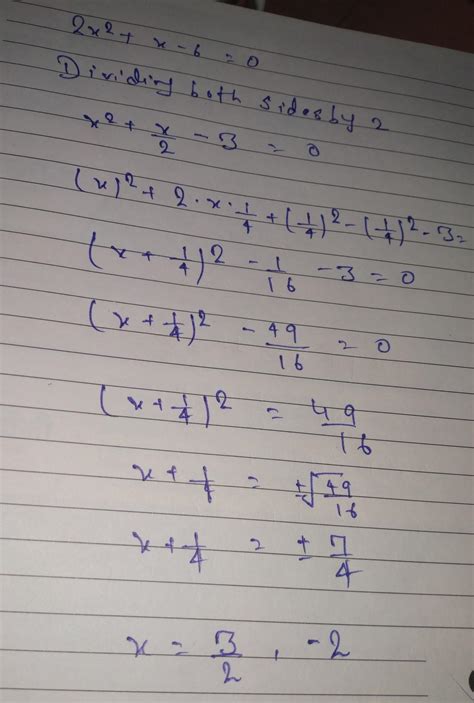 2x² + x - 6 = 0
Dividing both sides by 2
x² + x/2 - 3 = 0
(x)² + 2·x·1/4 + (1/4)² - (1/4)² - 3 =
(x + 1/4)² - 1/16 - 3 = 0
(x + 1/4)² - 49/16 = 0
(x + 1/4)² = 49/16
x + 1/4 = ±√49/16
x + 1/4 = ± 7/4
x = 3/2, -2